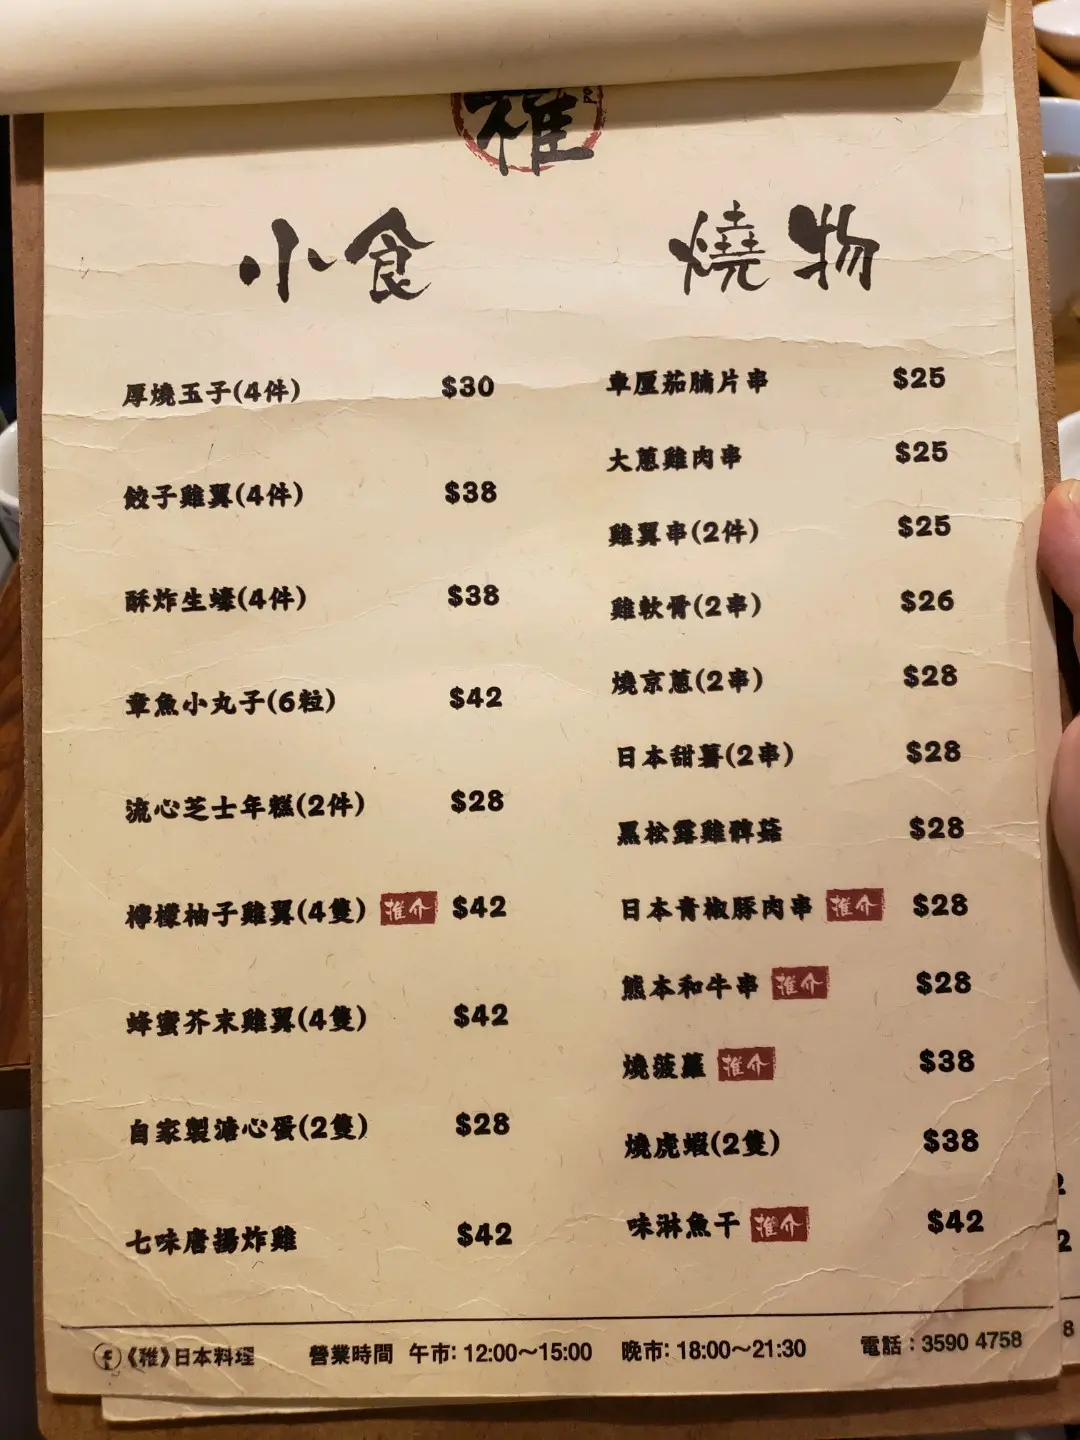 雅
小食
厚燒玉子(4件) $30
餃子雞翼(4件) $38
酥炸生蠔(4件) $38
章魚小丸子(6粒) $42
流心芝士年糕(2件) $28
檸檬柚子雞翼(4隻) 推介 $42
蜂蜜芥末雞翼(4隻) $42
自家製溏心蛋(2隻) $28
七味唐揚炸雞 $42
燒物
車厘茄腩片串 $25
大蔥雞肉串 $25
雞翼串(2件) $25
雞軟骨(2串) $26
燒京蔥(2串) $28
日本甜薯(2串) $28
黑松露雞髀菇 $28
日本青椒豚肉串 推介 $28
熊本和牛串 推介 $28
燒菠蘿 推介 $38
燒虎蝦(2隻) $38
味淋魚干 推介 $42
《雅》日本料理 營業時間 午市: 12:00～15:00 晚市: 18:00～21:30 電話 : 3590 4758